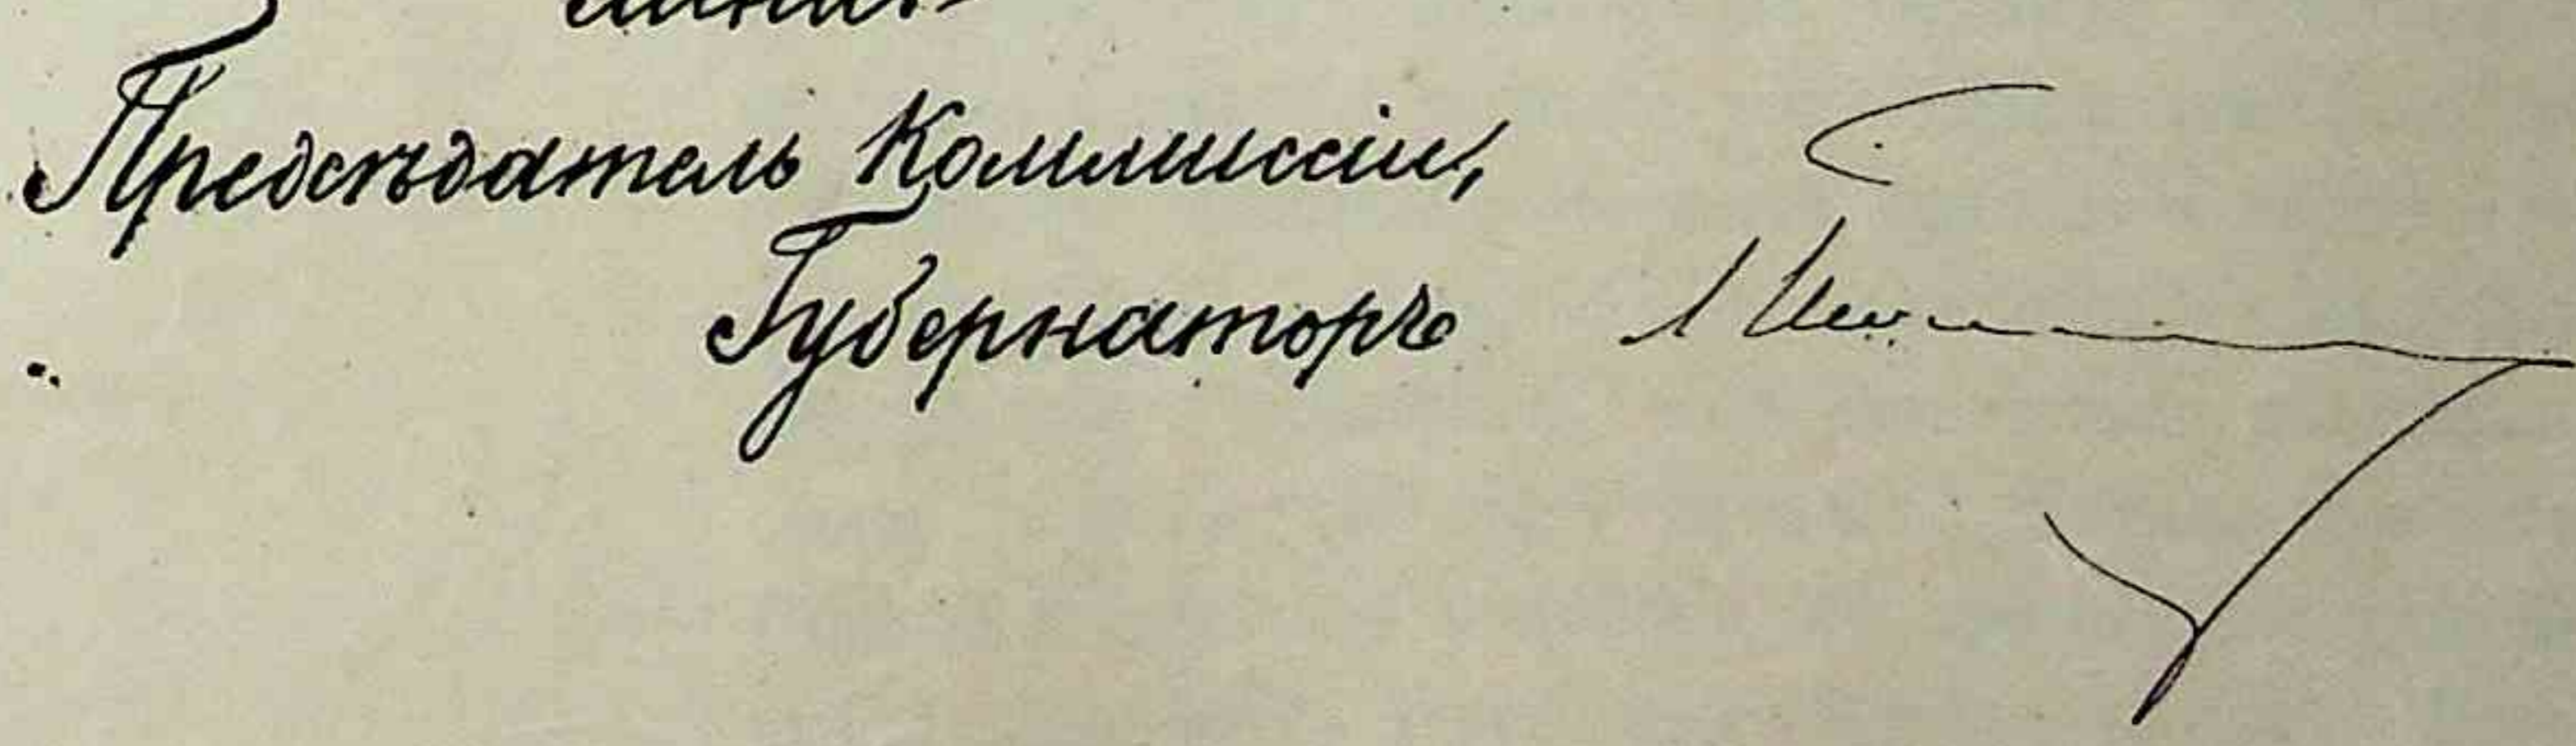 Предсѣдатель Коммиссіи,
Губернаторъ